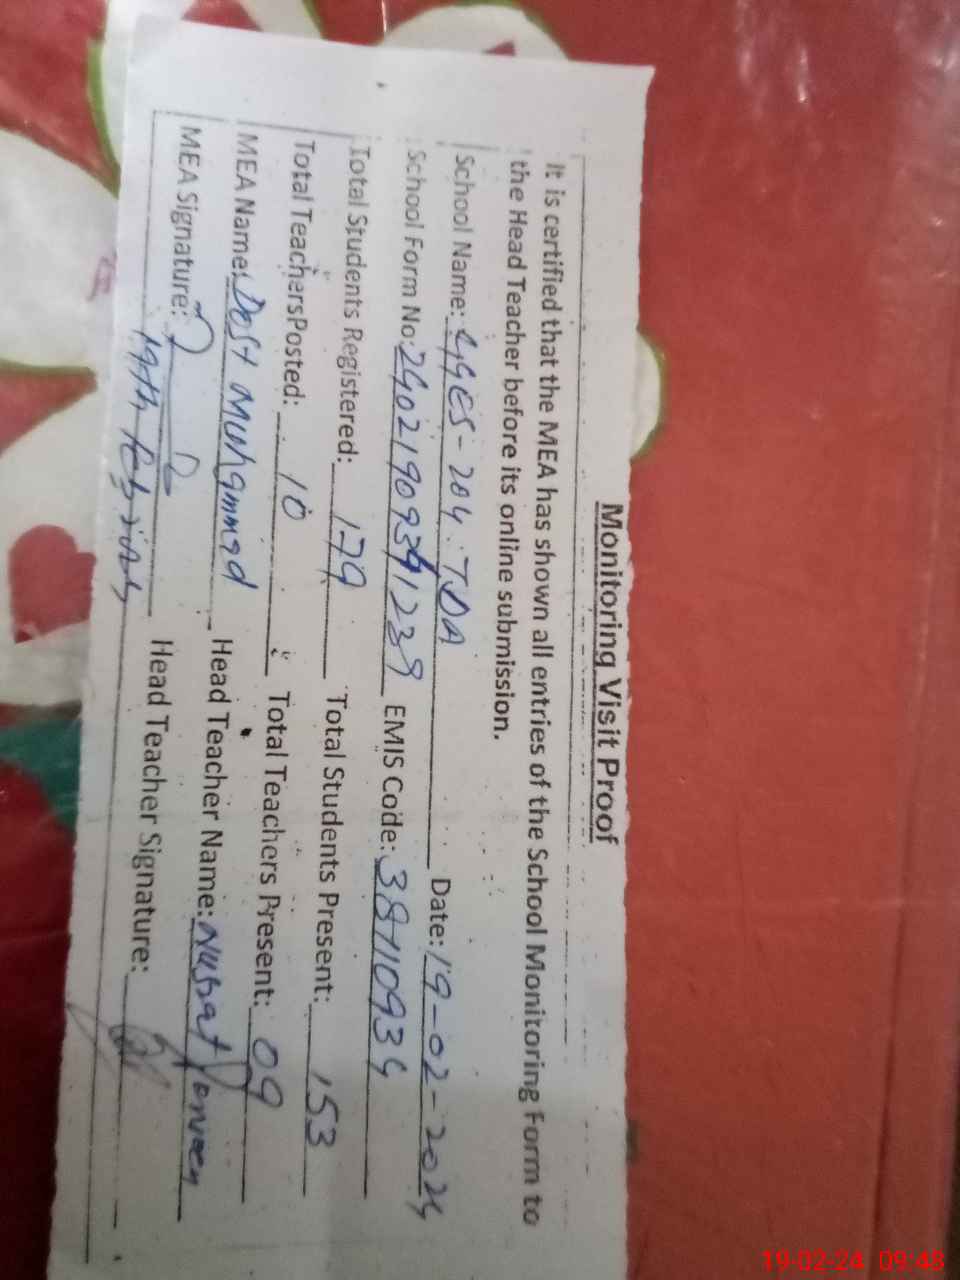 Monitoring Visit Proof
It is certified that the MEA has shown all entries of the School Monitoring Form to
the Head Teacher before its online submission.
School Name: GGES-204 TDA Date: 19-02-2024
School Form No: EMIS Code: 38710934
Total Students Registered: 179 Total Students Present: 153
Total Teachers Posted: 10 Total Teachers Present: 09
MEA Name: Dost Muhammad Head Teacher Name: Nusrat Parveen
MEA Signature: Head Teacher Signature:
19th
19-02-24 09:48